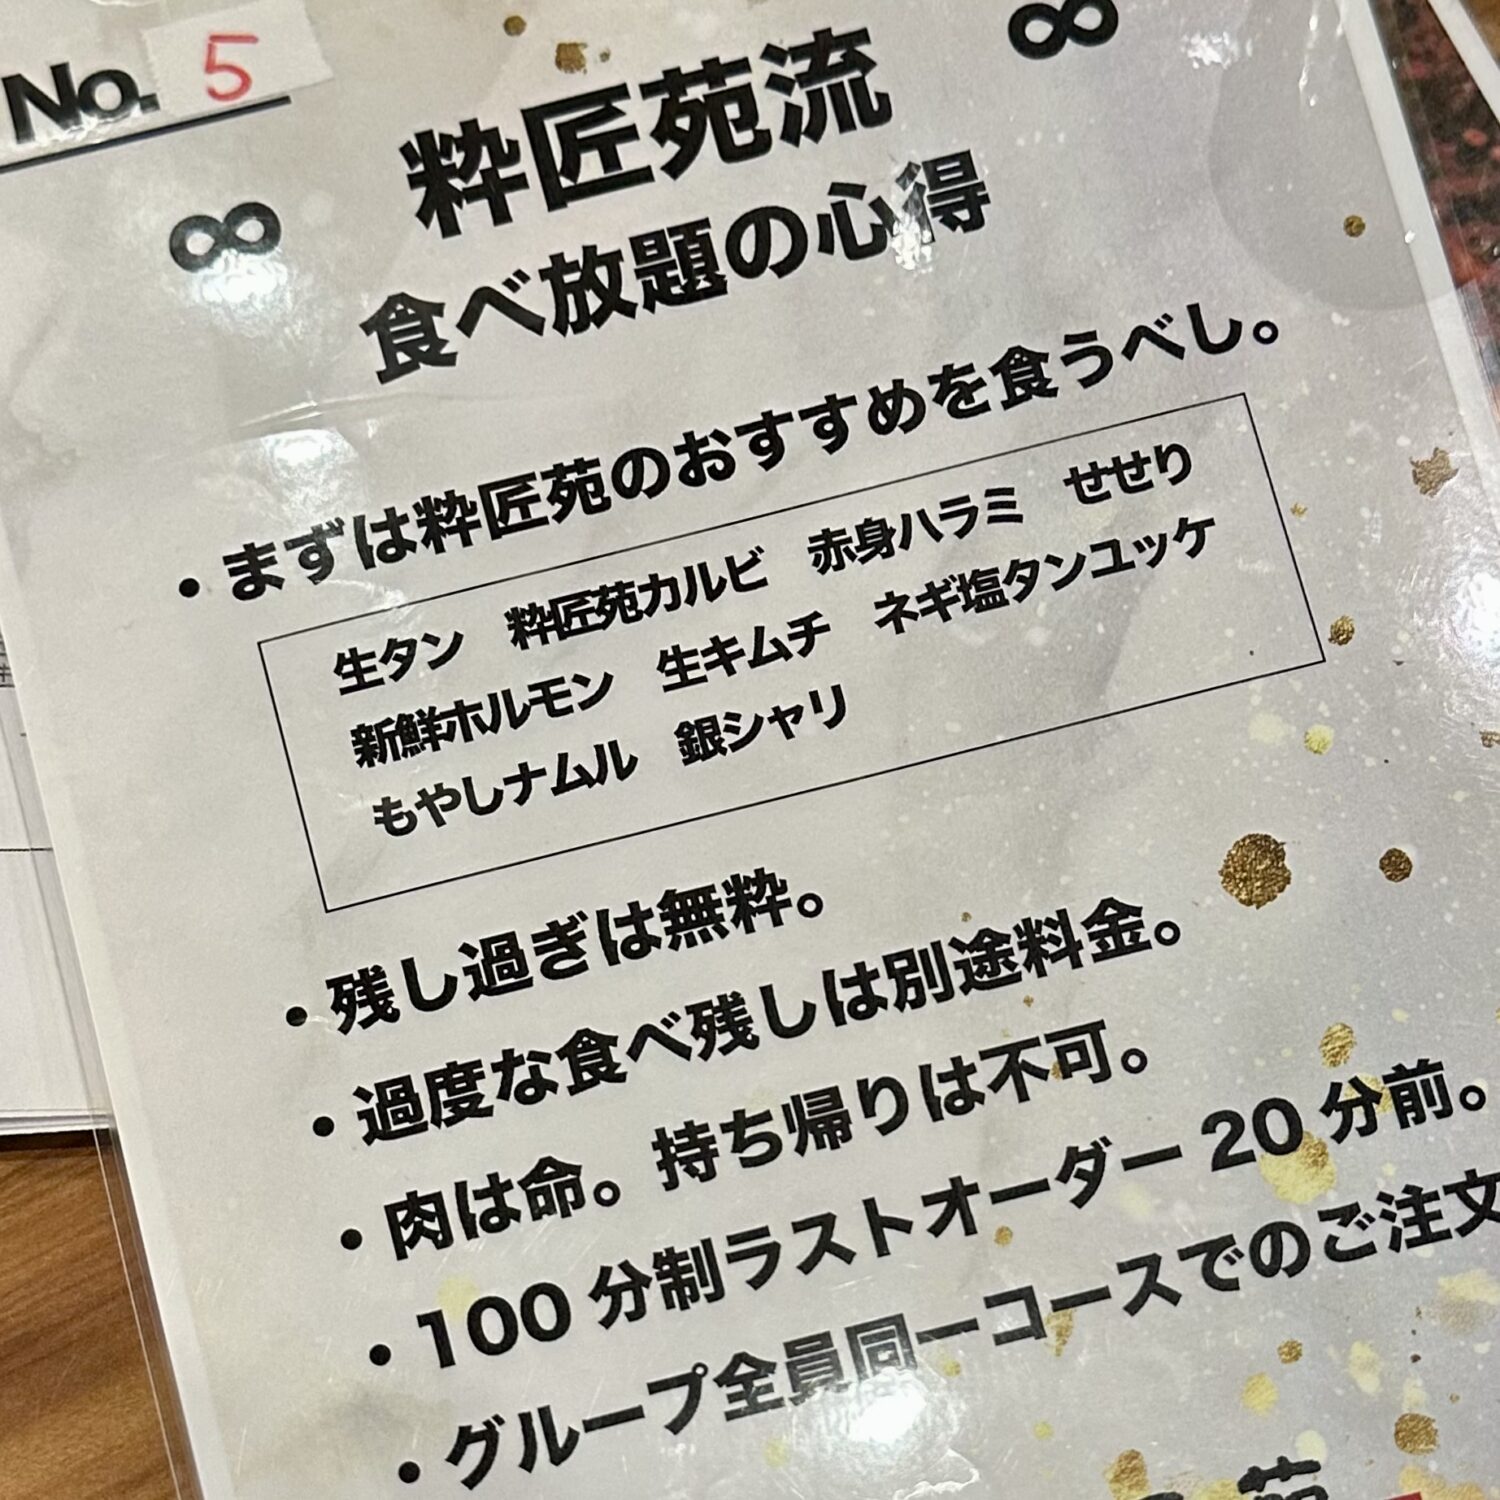 No. 5
∞ 粋匠苑流 ∞
食べ放題の心得
・まずは粋匠苑のおすすめを食うべし。
生タン 粋匠苑カルビ 赤身ハラミ せせり
新鮮ホルモン 生キムチ ネギ塩タンユッケ
もやしナムル 銀シャリ
・残し過ぎは無粋。
・過度な食べ残しは別途料金。
・肉は命。持ち帰りは不可。
・100分制ラストオーダー20分前。
・グループ全員同一コースでのご注文
苑